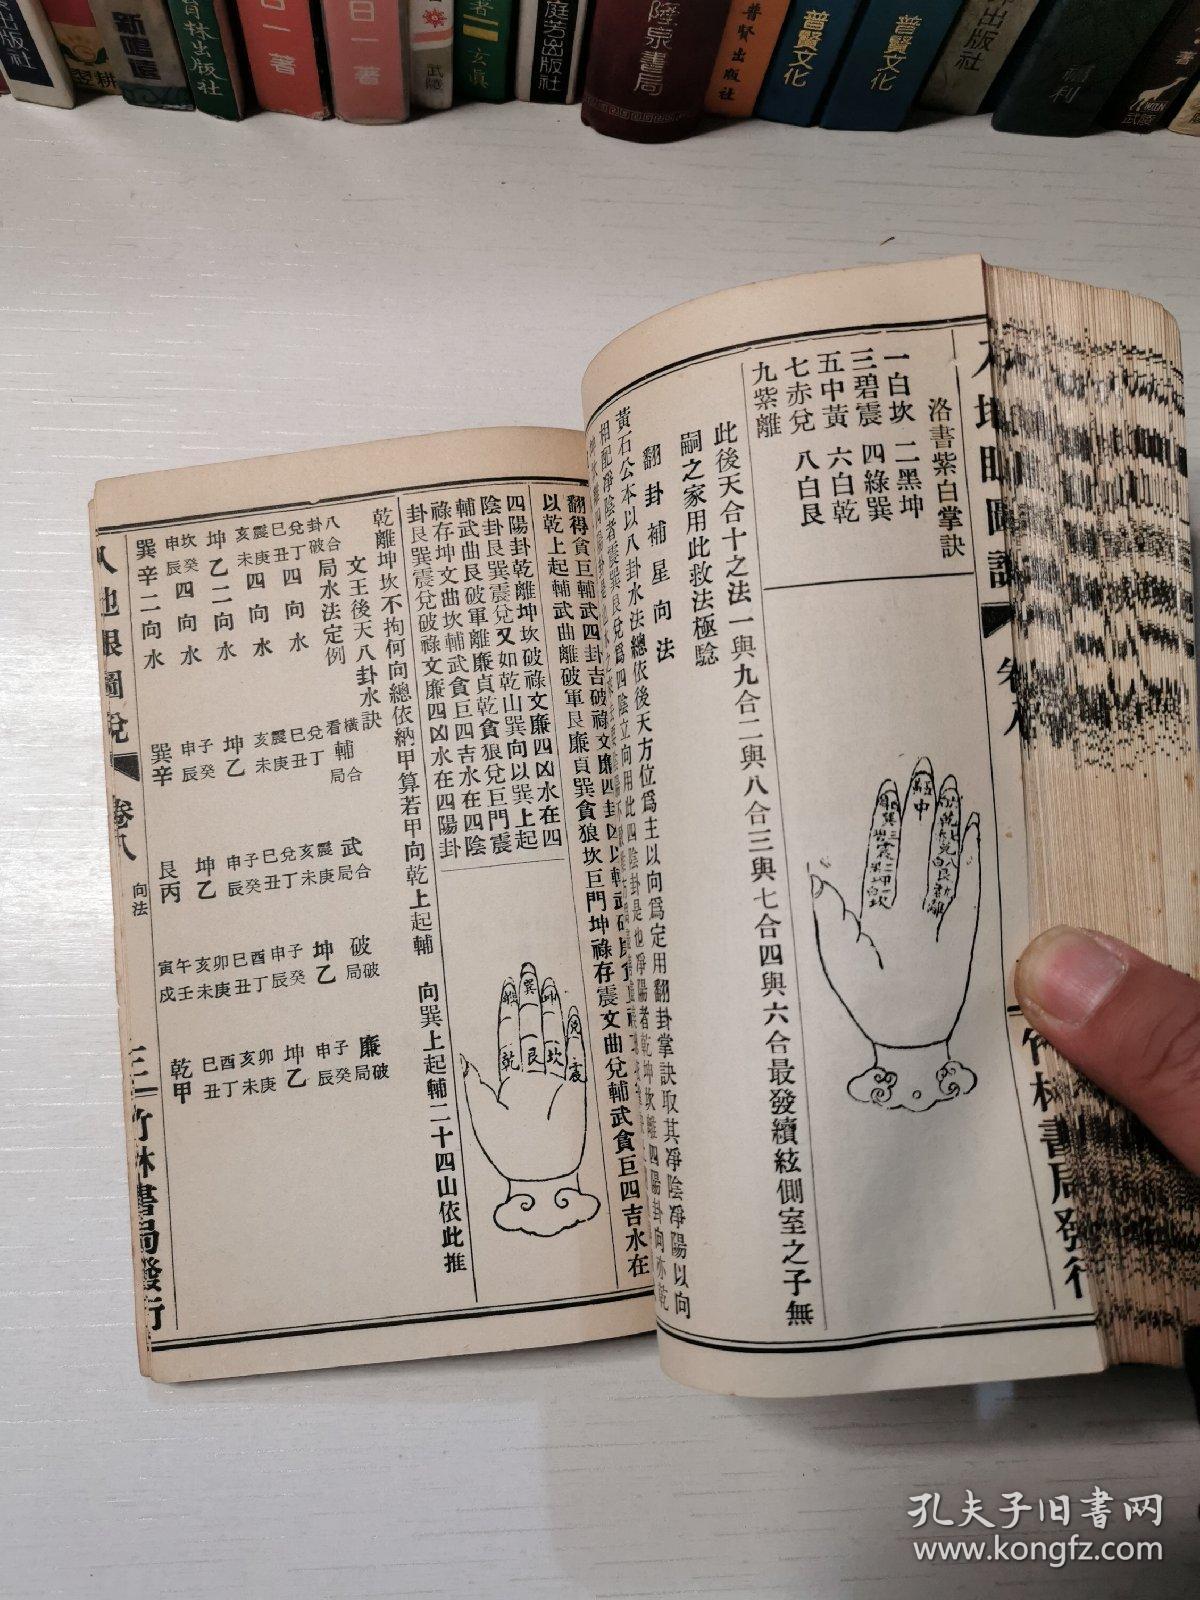 出版社
新鳴遠
翌耕
育林出版社
日一 著
日一 著
武陵
者=玄真
庭若出版社
陸泉書局
普賢出版社
普賢文化
普賢文化
出版社
福利
武陵
卷八
竹林書局發行
洛書紫白掌訣
一白坎 二黑坤
三碧震 四綠巽
五中黃 六白乾
七赤兌 八白艮
九紫離
此後天合十之法一與九合二與八合三與七合四與六合最發續絃側室之子無
嗣之家用此救法極騐
翻卦補星向法
黃石公本以八卦水法總依後天方位爲主以向爲定用翻卦掌訣取其淨陰淨陽以向
相配淨陰者震巽艮兌爲四陰立向用此四陰卦是也淨陽者乾坤坎離四陽卦向亦乾
翻得貪巨輔武四卦吉破祿文廉四卦凶
以乾上起輔武曲離破軍艮廉貞巽貪狼坎巨門坤祿存震文曲兌輔武貪巨四吉水在
四陽卦乾離坤坎破祿文廉四凶水在四
陰卦艮巽震兌又如乾山巽向以巽上起
輔武曲艮破軍離廉貞乾貪狼兌巨門震
祿存坤文曲坎輔武貪巨四吉水在四陰
卦艮巽震兌破祿文廉四凶水在四陽卦
乾離坤坎不拘何向總依納甲算若甲向乾上起輔 向巽上起輔二十四山依此推
巽
艮
坤
坎
乾
兌
震
文王後天八卦水訣
八合局水法定例
卦破
橫合
看輔局
武合局
破破局
廉破局
兌丁巳丑四向水
震庚亥未四向水
坤乙二向水
坎癸申辰四向水
巽辛二向水
兌丁巳丑
震庚亥未
坤乙
子癸申辰
巽辛
震庚亥未
兌丁巳丑
子癸申辰
坤乙
艮丙
坤乙
子癸申辰
酉丁巳丑
卯庚亥未
午壬寅戌
子癸申辰
坤乙
卯庚亥未
酉丁巳丑
乾甲
八地眼圖說
卷八
向法
三
竹林書局發行
孔夫子旧书网
www.kongfz.com